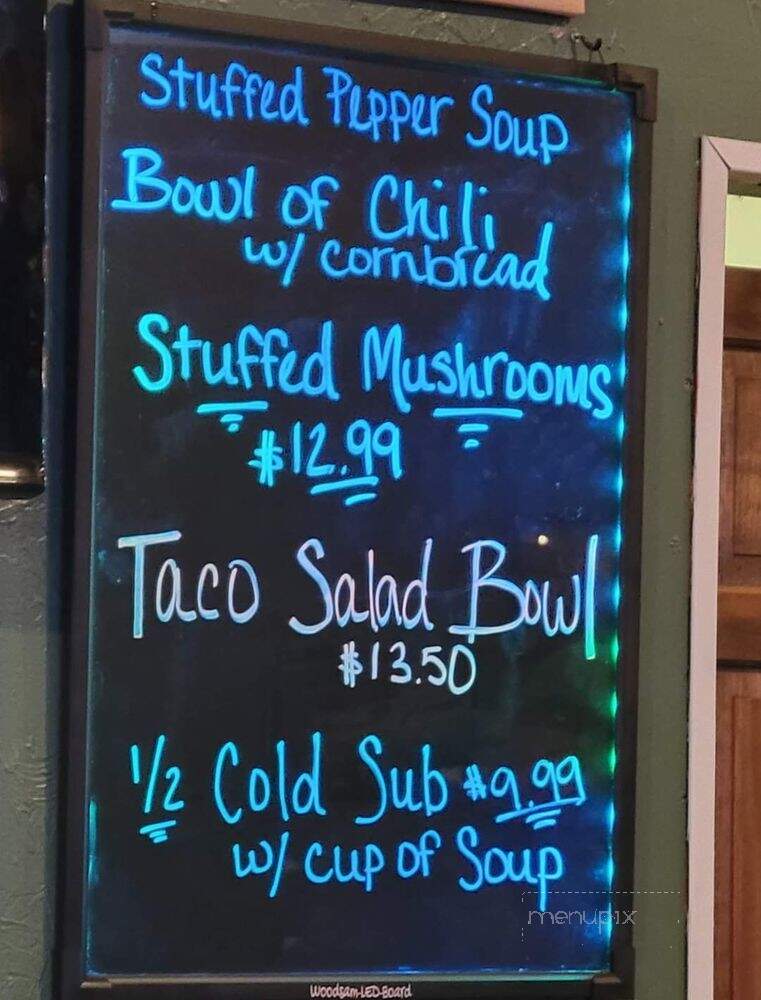 Stuffed Pepper Soup
Bowl of Chili
w/ cornbread
Stuffed Mushrooms
$12.99
Taco Salad Bowl
$13.50
1/2 Cold Sub $9.99
w/ cup of Soup
menupix
Woodsam-LED-Board